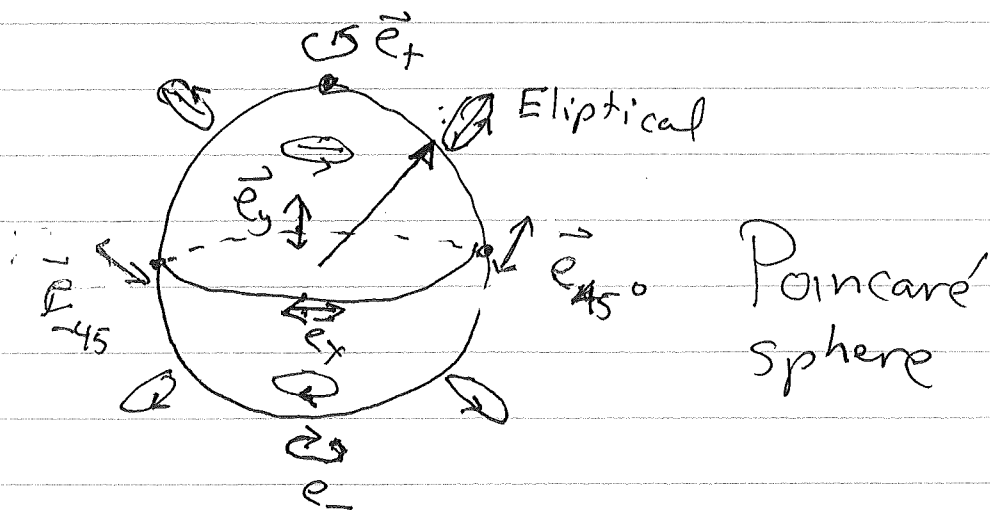 e⃗₊
Eliptical
e⃗y
e⃗₋₄₅
e⃗₄₅°
eₓ
e₋
Poincaré
sphere